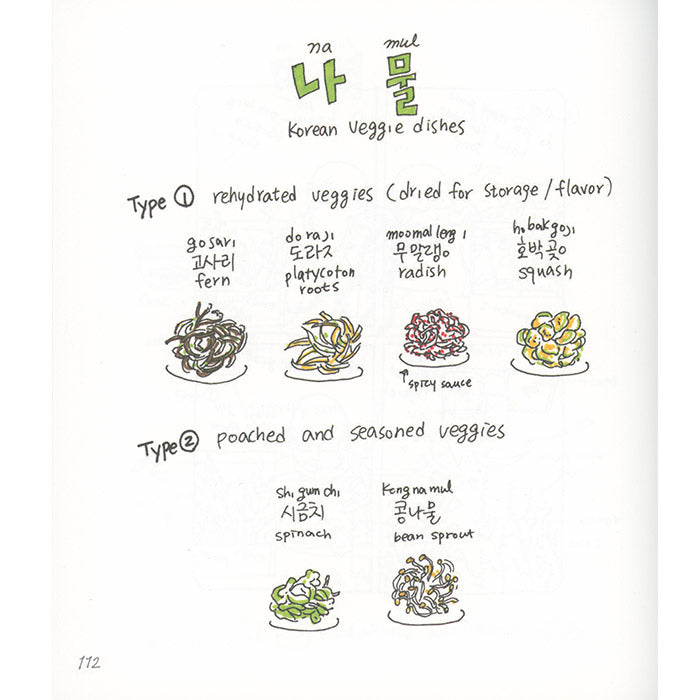 na mul
나 물
Korean veggie dishes
Type ① rehydrated veggies (dried for storage/flavor)
gosari
고사리
fern
doraji
도라지
platycoton
roots
moomallengi
무말랭이
radish
hobakgoji
호박곶이
squash
↑ spicy sauce
Type ② poached and seasoned veggies
shigumchi
시금치
spinach
Kongnamul
콩나물
bean sprout
112